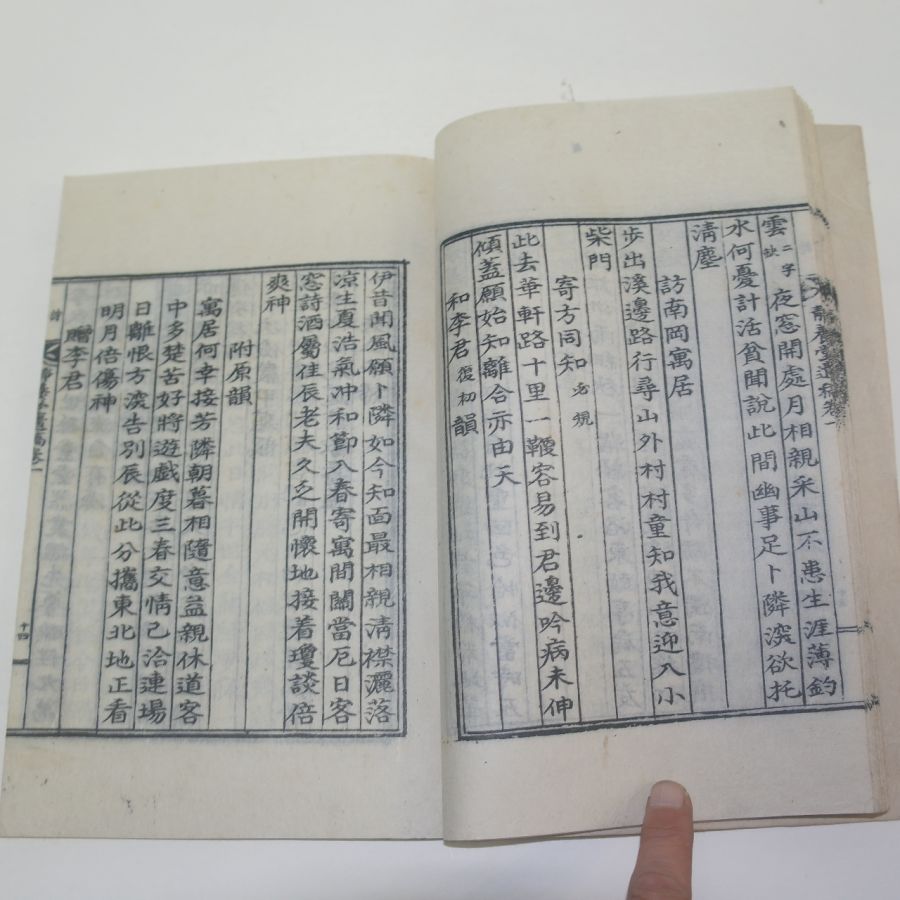 雲二字缺夜窓開處月相親采山不患生涯薄釣
水何憂計活貧聞說此間幽事足卜隣深欲托
淸塵
訪南岡寓居
步出溪邊路行尋山外村村童知我意迎入小
柴門
寄方同知必規
此去華軒路十里一鞭容易到君邊吟病未伸
傾蓋願始知離合亦由天
和李君復初韻
伊昔聞風願卜隣如今知面最相親淸襟灑落
凉生夏浩氣冲和節入春寄寓間關當厄日客
窓詩酒屬佳辰老夫久乏開懷地接着瓊談倍
爽神
附原韻
寓居何幸接芳隣朝暮相隨意益親休道客
中多楚苦好將遊戲度三春交情已洽連場
日離恨方深告別辰從此分攜東北地正看
明月倍傷神
贈李君
十四